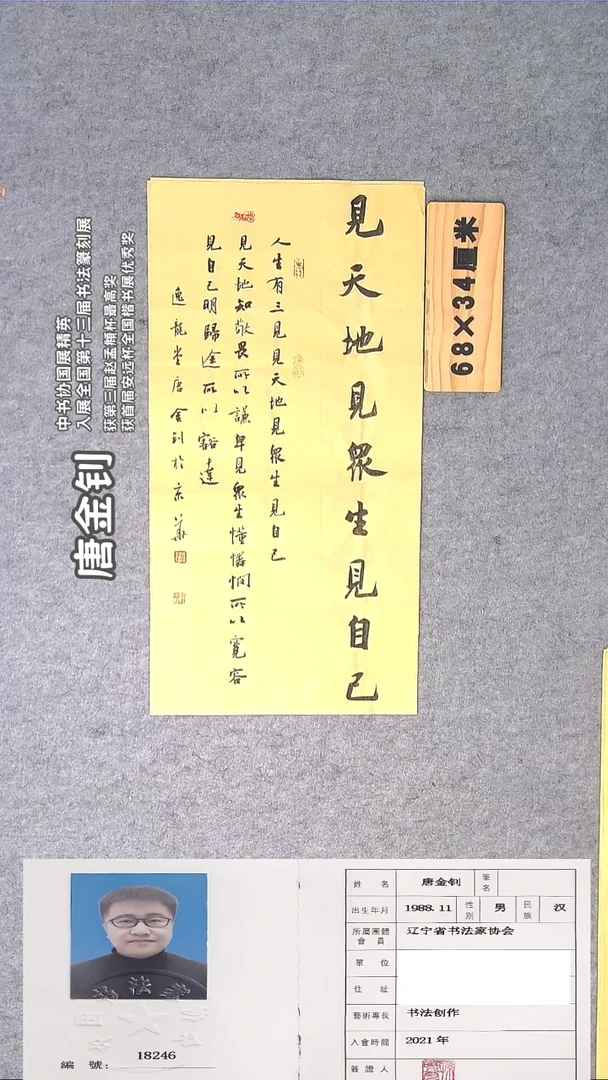 見天地見眾生見自己
人生有三見見天地見眾生見自己
見天地知敬畏所以謙卑見眾生懂憐憫所以寬容
見自己明歸途所以豁達
逸龍堂唐金钊於京華
68×34厘米
唐金钊
中书协国展精英
入展全国第十三届书法篆刻展
获第三届赵孟頫杯最高奖
获首届安远杯全国楷书展优秀奖
編 號: 18246
姓 名 唐金钊 筆名
出生年月 1988.11 性別 男 民族 汉
所屬團體會員 辽宁省书法家协会
單 位
住 址
藝術專長 书法创作
入會時間 2021年
簽證人